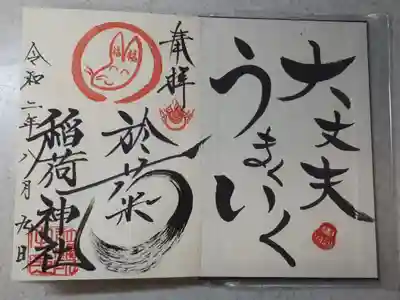 大丈夫
うまくいく
奉拝
於菜
稲荷神社
令和二年八月九日